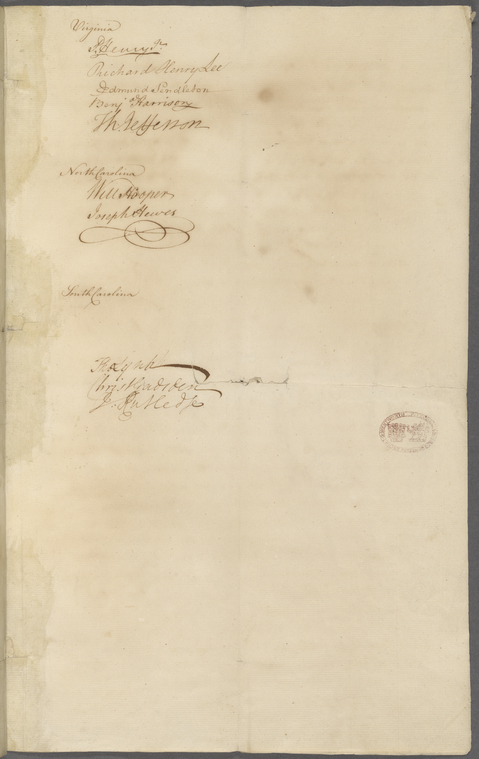 Virginia
P. Henry Jr.
Richard Henry Lee
Edmund Pendleton
Benja Harrison
Th Jefferson
North Carolina
Will Hooper
Joseph Hewes
South Carolina
Tho Lynch
Chris Gadsden
J. Rutledge